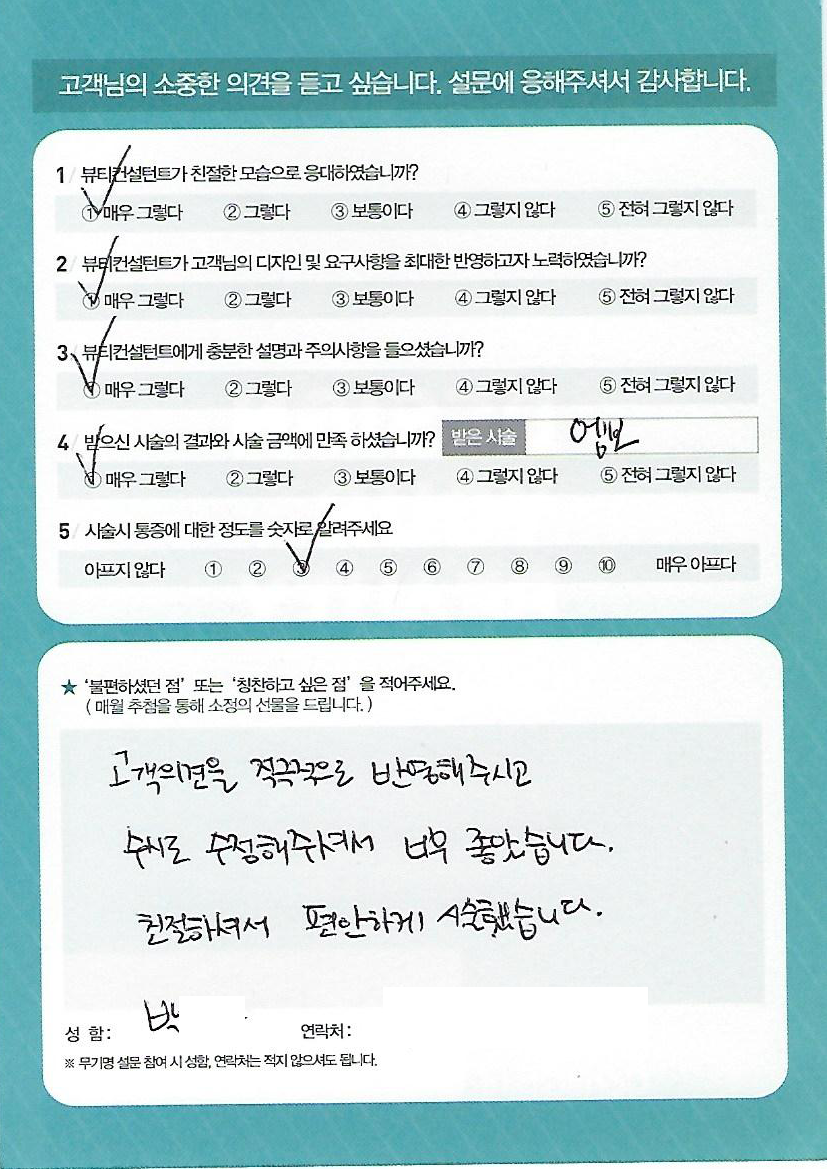 고객님의 소중한 의견을 듣고 싶습니다. 설문에 응해주셔서 감사합니다.
1 / 뷰티컨설턴트가 친절한 모습으로 응대하였습니까?
① 매우 그렇다 ② 그렇다 ③ 보통이다 ④ 그렇지 않다 ⑤ 전혀 그렇지 않다
2 / 뷰티컨설턴트가 고객님의 디자인 및 요구사항을 최대한 반영하고자 노력하였습니까?
① 매우 그렇다 ② 그렇다 ③ 보통이다 ④ 그렇지 않다 ⑤ 전혀 그렇지 않다
3 / 뷰티컨설턴트에게 충분한 설명과 주의사항을 들으셨습니까?
① 매우 그렇다 ② 그렇다 ③ 보통이다 ④ 그렇지 않다 ⑤ 전혀 그렇지 않다
4 / 받으신 시술의 결과와 시술 금액에 만족 하셨습니까? 받은 시술 엠보
① 매우 그렇다 ② 그렇다 ③ 보통이다 ④ 그렇지 않다 ⑤ 전혀 그렇지 않다
5 / 시술시 통증에 대한 정도를 숫자로 알려주세요
아프지 않다 ① ② ③ ④ ⑤ ⑥ ⑦ ⑧ ⑨ ⑩ 매우 아프다
★ '불편하셨던 점' 또는 '칭찬하고 싶은 점' 을 적어주세요.
( 매월 추첨을 통해 소정의 선물을 드립니다. )
고객의견을 적극적으로 반영해주시고
수시로 수정해주셔서 너무 좋았습니다.
친절하셔서 편안하게 시술했습니다.
성 함 : 박 연락처 :
※ 무기명 설문 참여 시 성함, 연락처는 적지 않으셔도 됩니다.